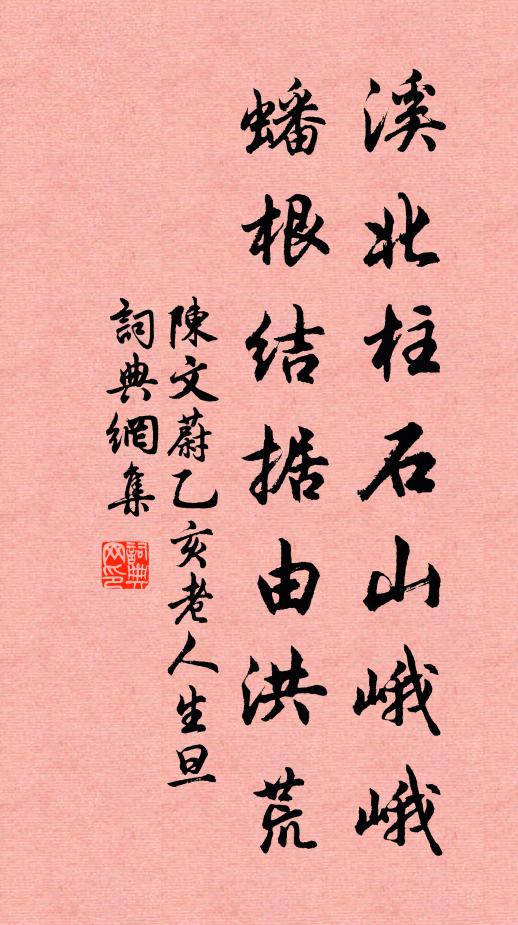 溪北柱石山峨峨
蟠根结据由洪荒
陳文蔚乙亥老人生旦
詞典網集
詞典网印